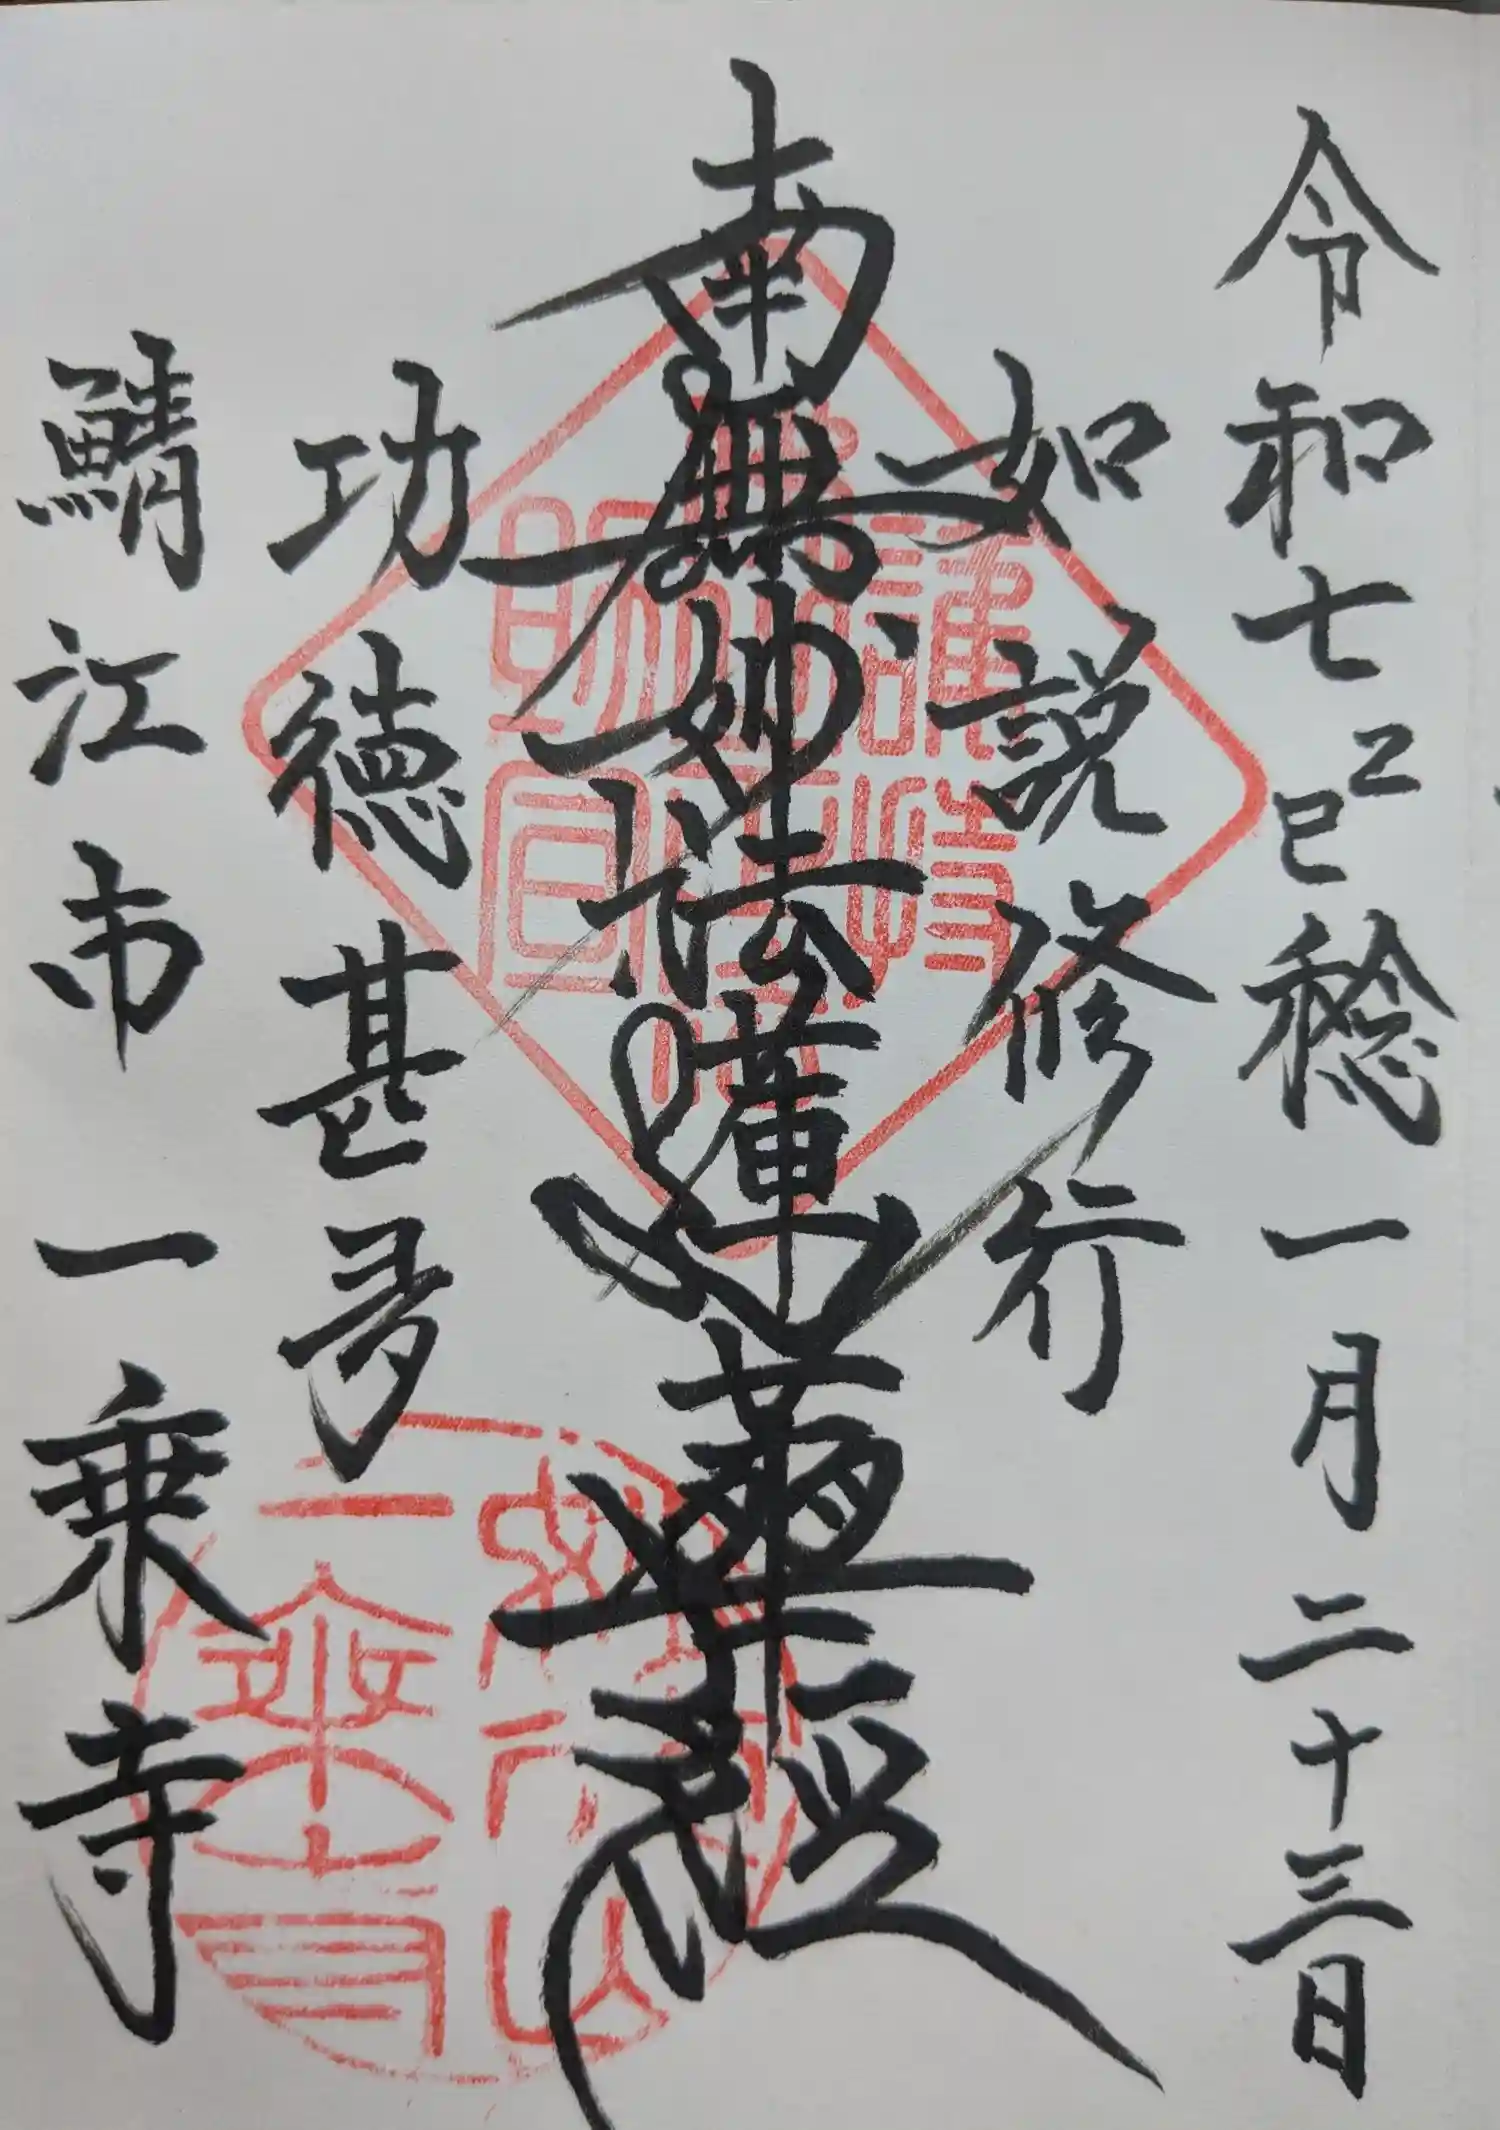 令和七乙巳稔一月二十三日
如説修行
南無妙法蓮華経
功徳甚多
鯖江市一乗寺